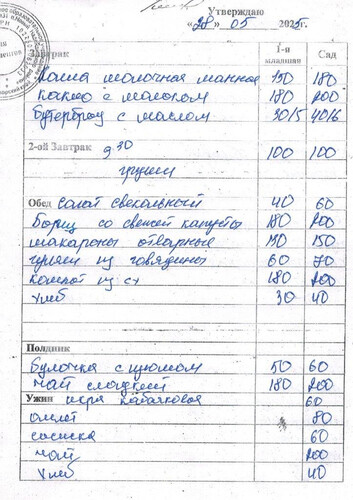 Утверждаю
«28» 05 2025г.
Завтрак 1-я младшая Сад
Каша молочная манная 150 180
Какао с молоком 180 200
Бутерброд с маслом 30/5 40/6
2-ой Завтрак 9.30 100 100
груши
Обед Салат свекольный 40 60
Борщ со свежей капусты 180 200
макароны отварные 150
гуляш из говядины 60 70
компот из сх 180 200
хлеб 30 40
Полдник
Булочка с изюмом 50 60
чай сладкий 180 200
Ужин икра кабачковая 60
омлет 80
сосиска 60
чай 200
хлеб 40